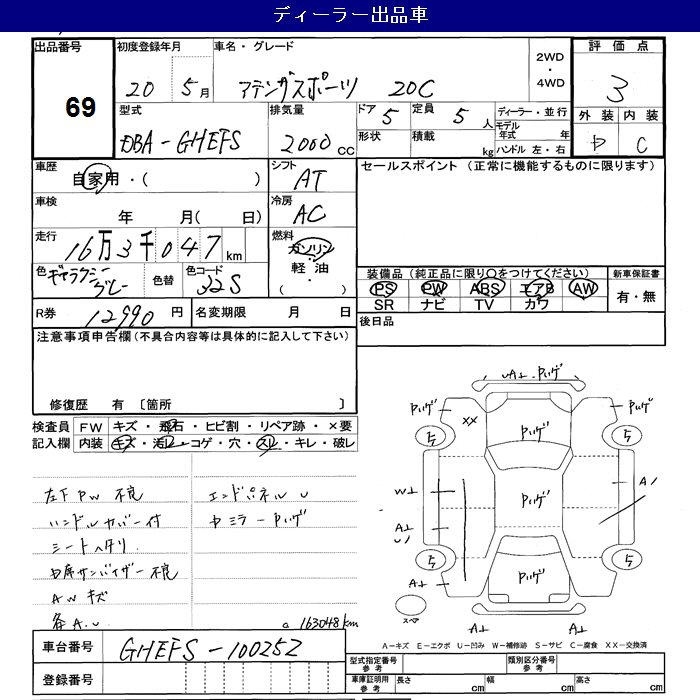 ディーラー出品車
出品番号
69
初度登録年月
20 5月
車名・グレード
アテンザスポーツ 20C
2WD
・
4WD
評価点
3
外装 内装
C
型式
DBA-GHEFS
排気量
2000 cc
ドア 5
定員 5人
形状
積載 kg
ディーラー・並行
モデル年式 年
ハンドル 左・右
車歴
自家用・( )
シフト
AT
車検
年 月( 日)
冷房
AC
走行
16万3千047km
燃料
ガソリン
軽油
( ・ )
色
ギャラクシーグレー
色替
色コード
32S
R券
12990円
名変期限 月 日
セールスポイント (正常に機能するものに限ります)
装備品(純正品に限り○をつけてください)
PS PW ABS エアB AW
SR ナビ TV カワ
新車保証書
有・無
後日品
注意事項申告欄(不具合内容等は具体的に記入して下さい)
修復歴 有 [箇所 ]
検査員記入欄
FW キズ・飛石・ヒビ割・リペア跡・×要
内装 キズ・汚レ・コゲ・穴・スレ・キレ・破レ
左下PW 不良
ハンドルカバー付
シートヘタリ
サンバイザー不良
AWキズ
各A.U
エンドパネルU
ミラーハゲ
a 163048km
UA⊥
ハゲ
ハゲ
ハゲ
XX
ハゲ
5
5
ハゲ
W⊥
A⊥
U/
A/
5
5
ハゲ
A⊥
スペア
A⊥
A⊥
A=キズ E=エクボ U=凹み W=補修跡 S=サビ C=腐食 XX=交換済
車台番号
GHEFS-100252
登録番号
型式指定番号 参考
類別区分番号 参考
車庫証明用 参考
長さ cm 幅 cm 高さ cm